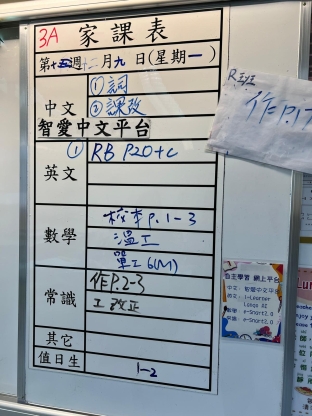 3A 家課表
第十五週 十二月九日(星期一)
中文 ①詞
②課改
智愛中文平台
英文 ① RB P20+c
數學 校本P.1-3
溫工
單工6(M)
常識 作P.2-3
工改正
其它
值日生 1-2
R班
作P.17
自主學習 網上平台
中文: 智愛中文平台
英文: i-Learner
Longo AI
數學: e-Smart2.0
常識: e-Smart2.0